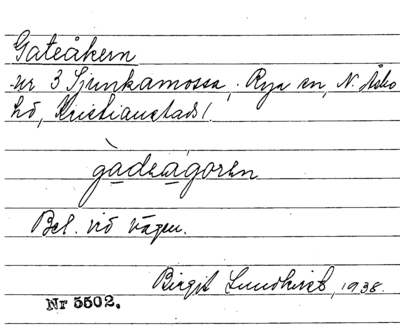 Gateåkern
nr 3 Sjunkamossa, Rya sn, N. Åsbo
hd, Kristianstads l.
gàdeågoren
Bel. vid vägen.
Birgit Lundkvist, 1938.
Nr 5502.